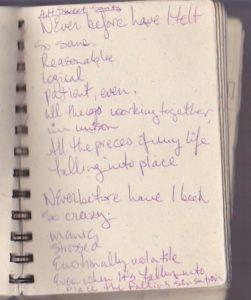 Never before have I felt
so sane.
Reasonable
logical
patient, even.
all things working together
in unison
All the pieces of my life
falling into place

Never before have I been
so crazy.
manic
stressed
Emotionally volatile
Even when it's falling into
place the falling sensation